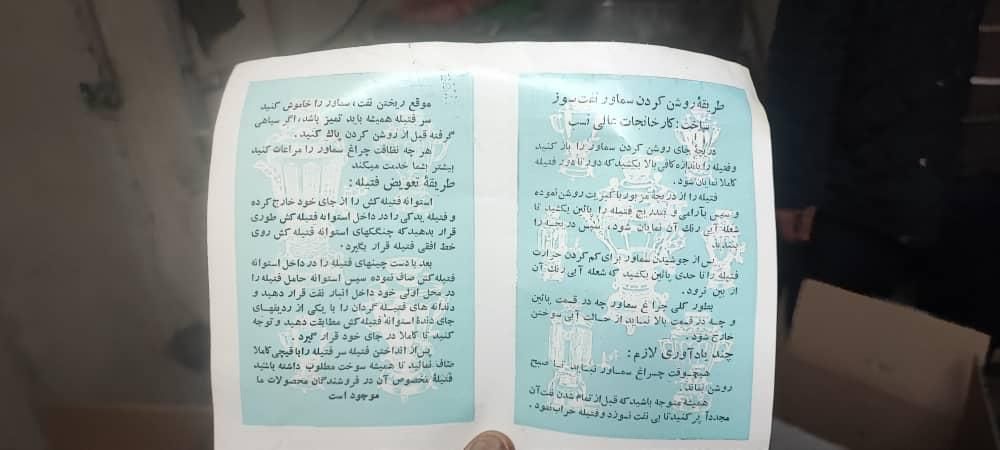 طریقهٔ روشن کردن سماور نفت سوز
ساخت: کارخانجات عالی نسب
دریچهٔ جای روشن کردن سماور را باز کنید
و فتیله را باندازه کافی بالا بکشید که دور تا دور فتیله
کاملا نمایان شود.
فتیله را از دریچهٔ مزبور با کبریت روشن نموده
و سپس بآرامی و بتدریج فتیله را پائین بکشید تا
شعله آبی رنگ آن نمایان شود، سپس دریچه را
ببندید.
پس از جوشیدن سماور برای کم کردن حرارت
فتیله را تا حدی پائین بکشید که شعله آبی رنگ آن
از بین نرود.
بطور کلی چراغ سماور چه در قسمت پائین
و چه در قسمت بالا نباید از حالت آبی سوختن
خارج شود.
چند یادآوری لازم:
هیچوقت چراغ سماور نباید تا صبح
روشن بماند.
همیشه متوجه باشید که قبل از تمام شدن نفت آن
مجدداً پر کنید تا بی نفت نسوزد و فتیله خراب نشود.
موقع ریختن نفت، سماور را خاموش کنید
سر فتیله همیشه باید تمیز باشد، اگر سیاهی
گرفته قبل از روشن کردن پاك کنید.
هر چه نظافت چراغ سماور را مراعات کنید
بیشتر بشما خدمت میکند
طریقهٔ تعویض فتیله:
استوانه فتیله کش را از جای خود خارج کرده
و فتیله یدکی را در داخل استوانه فتیله کش طوری
قرار بدهید که چنگکهای استوانه فتیله کش روی
خط افقی فتیله قرار بگیرد.
بعد با دست چینهای فتیله را در داخل استوانه
فتیله کش صاف نموده سپس استوانه حامل فتیله را
در محل اولی خود داخل انبار نفت قرار دهید و
دندانه های فتیله گردان را با یکی از ردیفهای
جای دندهٔ استوانه فتیله کش مطابقت دهید و توجه
کنید تا کاملا در جای خود قرار گیرد.
پس از انداختن فتیله سر فتیله را با قیچی کاملا
صاف نمائید تا همیشه سوخت مطلوب داشته باشید
فتیلهٔ مخصوص آن در فروشندگان محصولات ما
موجود است